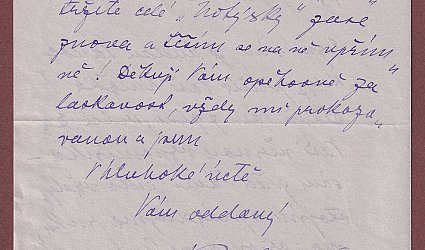 držíte celé „Nobýsky" zase
znova a těším se na ně upřím„
ně! Děkuji Vám opětovně za
laskavost, vždy mi prokazo„
vanou a jsem
V hluboké úctě
Vám oddaný